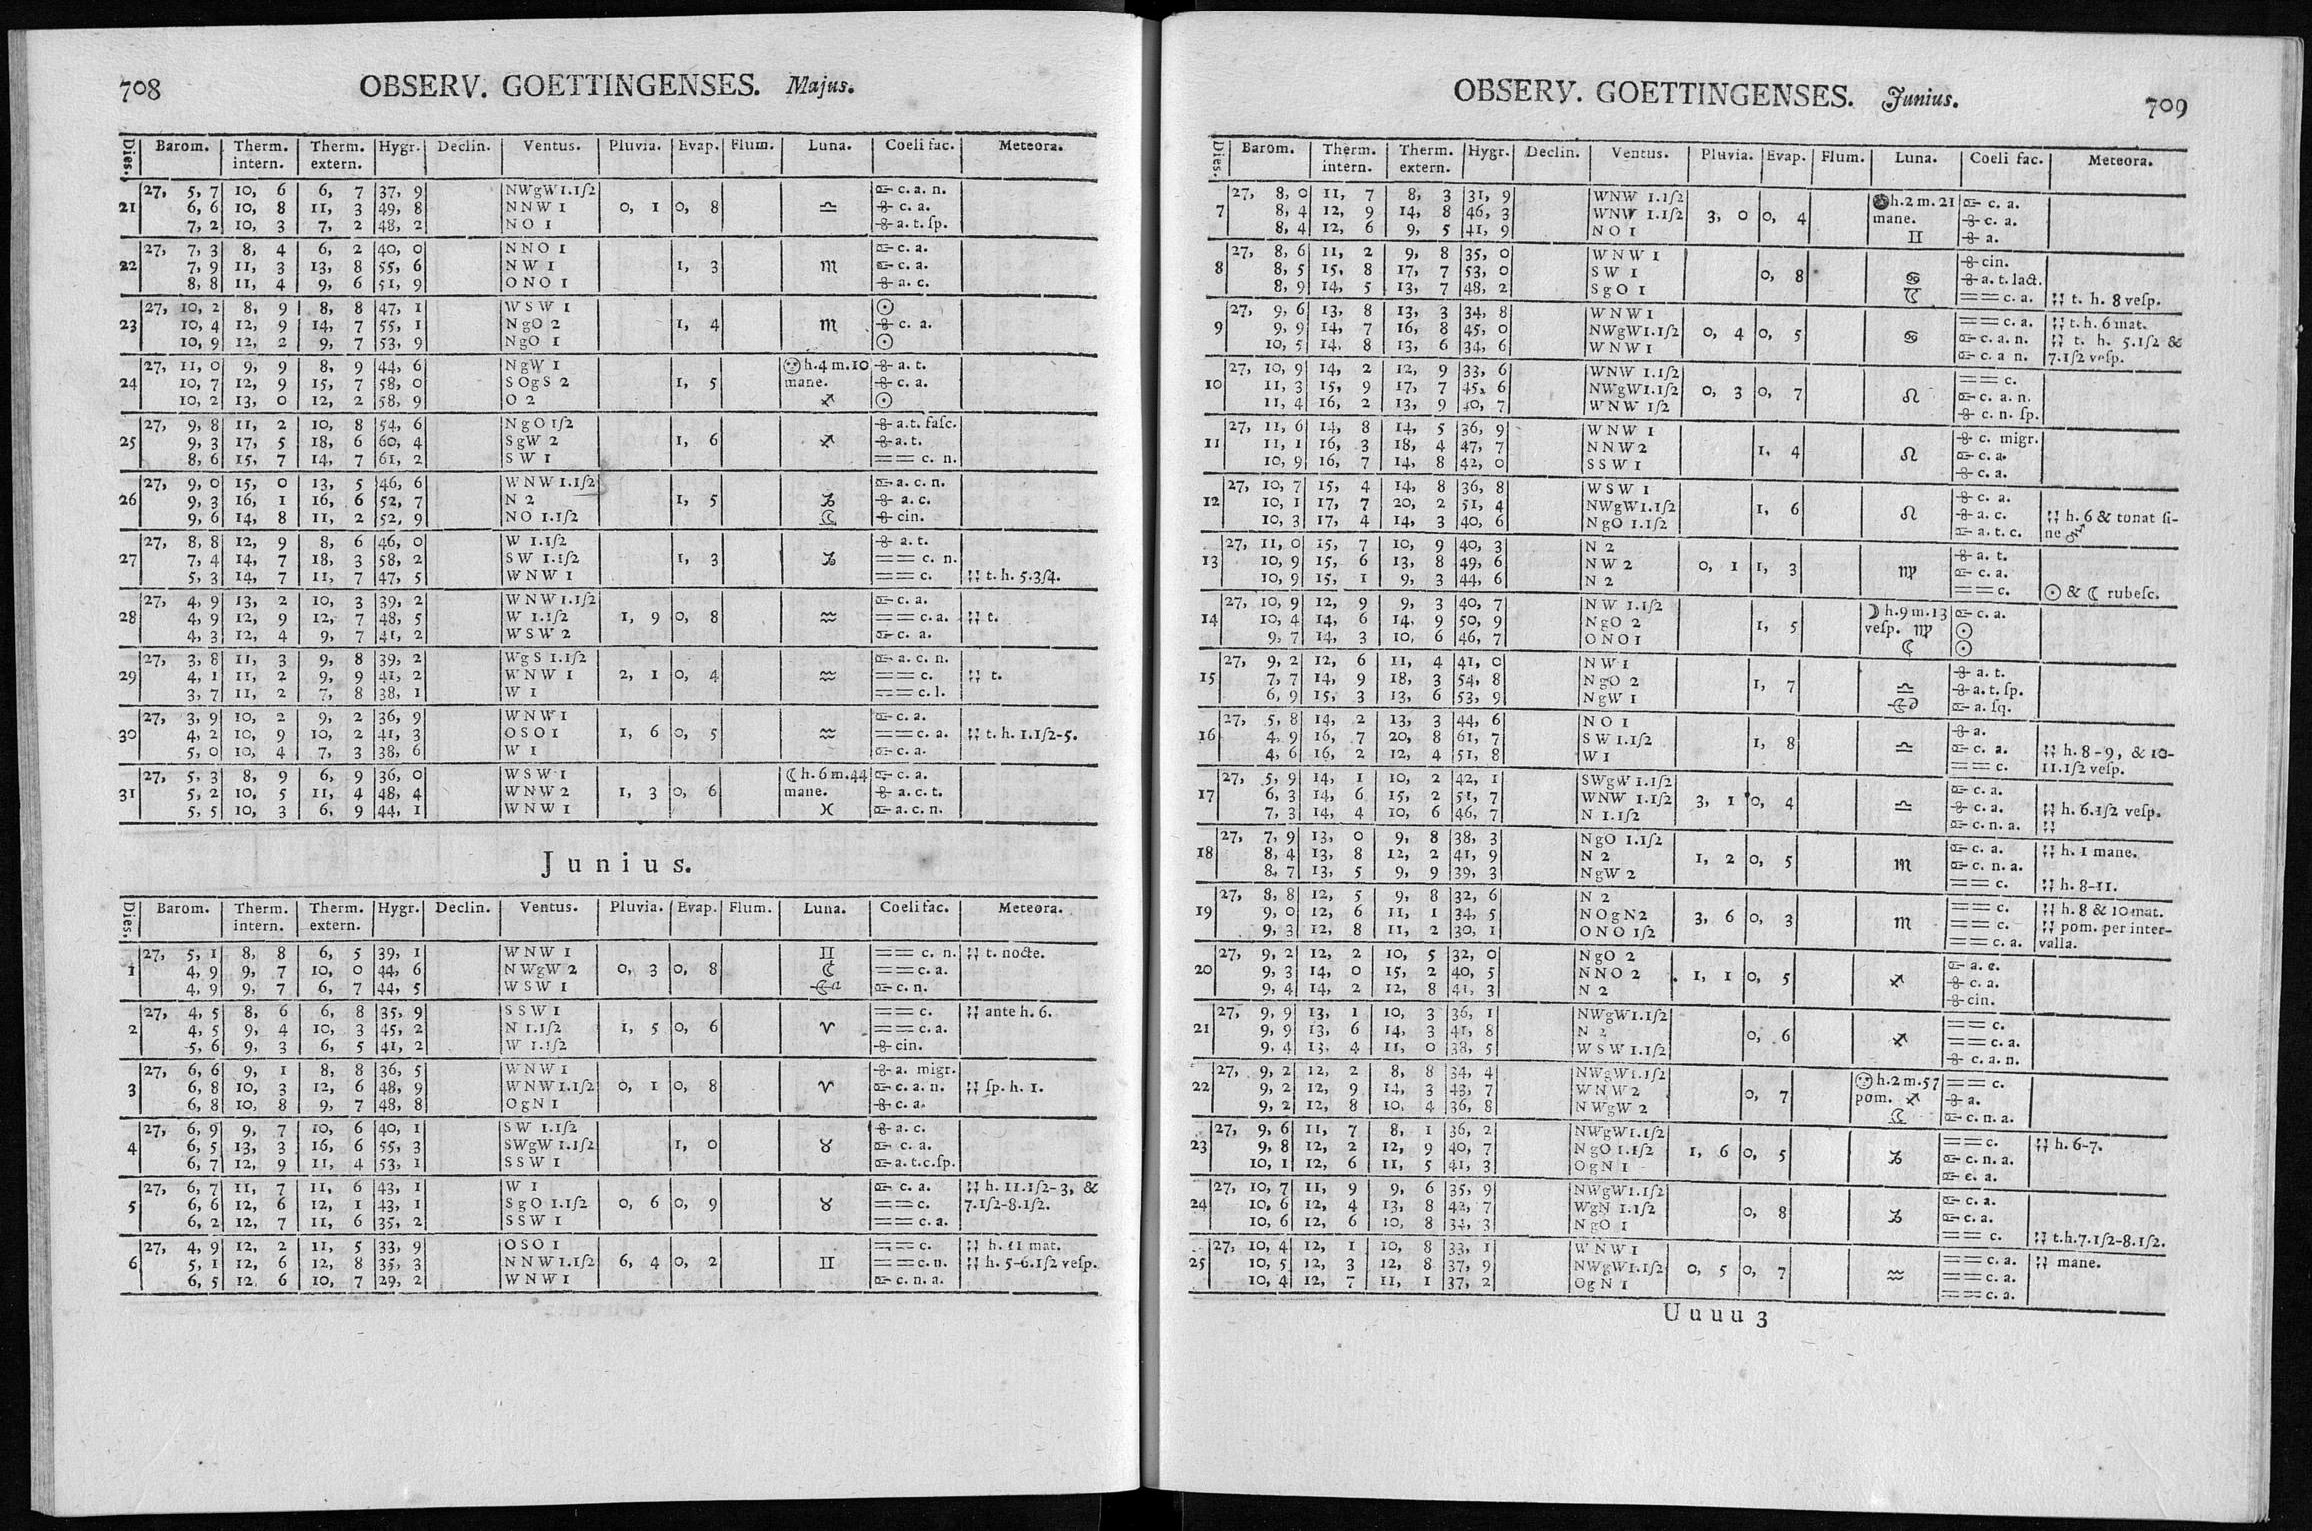 708 OBSERV. GOETTINGENSES. Majus.
Dies. Barom. Therm. intern. Therm. extern. Hygr. Declin. Ventus. Pluvia. Evap. Flum. Luna. Coeli fac. Meteora.
27, 5, 7 10, 6 6, 7 37, 9 NWgW 1.1ſ2 c. a. n.
21 6, 6 10, 8 11, 3 49, 8 NNW 1 0, 1 0, 8 ♎ c. a.
7, 2 10, 3 7, 2 48, 2 NO 1 a. t. ſp.
27, 7, 3 8, 4 6, 2 40, 0 NNO 1 c. a.
22 7, 9 11, 3 13, 8 55, 6 NW 1 1, 3 ♏ c. a.
8, 8 11, 4 9, 6 51, 9 ONO 1 a. c.
27, 10, 2 8, 9 8, 8 47, 1 WSW 1 ☉
23 10, 4 12, 9 14, 7 55, 1 NgO 2 1, 4 ♏ c. a.
10, 9 12, 2 9, 7 53, 9 NgO 1 ☉
27, 11, 0 9, 9 8, 9 44, 6 NgW 1 h. 4 m. 10 a. t.
24 10, 7 12, 9 15, 7 58, 0 SOgS 2 1, 5 mane. c. a.
10, 2 13, 0 12, 2 58, 9 O 2 ♐ ☉
27, 9, 8 11, 2 10, 8 54, 6 NgO 1ſ2 a. t. faſc.
25 9, 3 17, 5 18, 6 60, 4 SgW 2 1, 6 ♐ a. t.
8, 6 15, 7 14, 7 61, 2 SW 1 == c. n.
27, 9, 0 15, 0 13, 5 46, 6 WNW 1.1ſ2 a. c. n.
26 9, 3 16, 1 16, 6 52, 7 N 2 1, 5 ♑ a. c.
9, 6 14, 8 11, 2 52, 9 NO 1.1ſ2 ☾ cin.
27, 8, 8 12, 9 8, 6 46, 0 W 1.1ſ2 a. t.
27 7, 4 14, 7 18, 3 58, 2 SW 1.1ſ2 1, 3 ♑ == c. n.
5, 3 14, 7 11, 7 47, 5 WNW 1 == c. t. h. 5.3ſ4.
27, 4, 9 13, 2 10, 3 39, 2 WNW 1.1ſ2 c. a.
28 4, 9 12, 9 12, 7 48, 5 W 1.1ſ2 1, 9 0, 8 ♒ == c. a. t.
4, 3 12, 4 9, 7 41, 2 WSW 2 c. a.
27, 3, 8 11, 3 9, 8 39, 2 WgS 1.1ſ2 a. c. n.
29 4, 1 11, 2 9, 9 41, 2 WNW 1 2, 1 0, 4 ♒ == c. t.
3, 7 11, 2 7, 8 38, 1 W 1 == c. l.
27, 3, 9 10, 2 9, 2 36, 9 WNW 1 c. a.
30 4, 2 10, 9 10, 2 41, 3 OSO 1 1, 6 0, 5 ♒ == c. a. t. h. 1.1ſ2-5.
5, 0 10, 4 7, 3 38, 6 W 1 c. a.
27, 5, 3 8, 9 6, 9 36, 0 WSW 1 ☾ h. 6 m. 44 c. a.
31 5, 2 10, 5 11, 4 48, 4 WNW 2 1, 3 0, 6 mane. a. c. t.
5, 5 10, 3 6, 9 44, 1 WNW 1 ♓ a. c. n.
Junius.
Dies. Barom. Therm. intern. Therm. extern. Hygr. Declin. Ventus. Pluvia. Evap. Flum. Luna. Coeli fac. Meteora.
27, 5, 1 8, 8 6, 5 39, 1 WNW 1 ♊ == c. n. t. nocte.
1 4, 9 9, 7 10, 0 44, 6 NWgW 2 0, 3 0, 8 ☾ == c. a.
4, 9 9, 7 6, 7 44, 5 WSW 1 c. n.
27, 4, 5 8, 6 6, 8 35, 9 SSW 1 == c. ante h. 6.
2 4, 5 9, 4 10, 3 45, 2 N 1.1ſ2 1, 5 0, 6 ♈ == c. a.
5, 6 9, 3 6, 5 41, 2 W 1.1ſ2 cin.
27, 6, 6 9, 1 8, 8 36, 5 WNW 1 a. migr.
3 6, 8 10, 3 12, 6 48, 9 WNW 1.1ſ2 0, 1 0, 8 ♈ c. a. n. ſp. h. 1.
6, 8 10, 8 9, 7 48, 8 OgN 1 c. a.
27, 6, 9 9, 7 10, 6 40, 1 SW 1.1ſ2 a. c.
4 6, 5 13, 3 16, 6 55, 3 SWgW 1.1ſ2 1, 0 ♉ c. a.
6, 7 12, 9 11, 4 53, 1 SSW 1 a. t. c. ſp.
27, 6, 7 11, 7 11, 6 43, 1 W 1 c. a. h. 11.1ſ2-3, &
5 6, 6 12, 6 12, 1 43, 1 SgO 1.1ſ2 0, 6 0, 9 ♉ == c. 7.1ſ2-8.1ſ2.
6, 2 12, 7 11, 6 35, 2 SSW 1 == c. a.
27, 4, 9 12, 2 11, 5 33, 9 OSO 1 == c. h. 11 mat.
6 5, 1 12, 6 12, 8 35, 3 NNW 1.1ſ2 6, 4 0, 2 ♊ == c. n. h. 5-6.1ſ2 veſp.
6, 5 12, 6 10, 7 29, 2 WNW 1 c. n. a.
OBSERV. GOETTINGENSES. Junius. 709
Dies. Barom. Therm. intern. Therm. extern. Hygr. Declin. Ventus. Pluvia. Evap. Flum. Luna. Coeli fac. Meteora.
27, 8, 0 11, 7 8, 3 31, 9 WNW 1.1ſ2 h. 2 m. 21 c. a.
7 8, 4 12, 9 14, 8 46, 3 WNW 1.1ſ2 3, 0 0, 4 mane. c. a.
8, 4 12, 6 9, 5 41, 9 NO 1 ♊ a.
27, 8, 6 11, 2 9, 8 35, 0 WNW 1 cin.
8 8, 5 15, 8 17, 7 53, 0 SW 1 0, 8 ♋ a. t. lact.
8, 9 14, 5 13, 7 48, 2 SgO 1 ☾ == c. a. t. h. 8 veſp.
27, 9, 6 13, 8 13, 3 34, 8 WNW 1 == c. a. t. h. 6 mat.
9 9, 9 14, 7 16, 8 45, 0 NWgW 1.1ſ2 0, 4 0, 5 ♋ c. a. n. t. h. 5.1ſ2 &
10, 5 14, 8 13, 6 34, 6 WNW 1 c. a n. 7.1ſ2 veſp.
27, 10, 9 14, 2 12, 9 33, 6 WNW 1.1ſ2 == c.
10 11, 3 15, 9 17, 7 45, 6 NWgW 1.1ſ2 0, 3 0, 7 ♌ c. a. n.
11, 4 16, 2 13, 9 40, 7 WNW 1ſ2 c. n. ſp.
27, 11, 6 14, 8 14, 5 36, 9 WNW 1 c. migr.
11 11, 1 16, 3 18, 4 47, 7 NNW 2 1, 4 ♌ c. a.
10, 9 16, 7 14, 8 42, 0 SSW 1 c. a.
27, 10, 7 15, 4 14, 8 36, 8 WSW 1 c. a.
12 10, 1 17, 7 20, 2 51, 4 NWgW 1.1ſ2 1, 6 ♌ a. c. h. 6 & tonat ſi-
10, 3 17, 4 14, 3 40, 6 NgO 1.1ſ2 a. t. c. ne
27, 11, 0 15, 7 10, 9 40, 3 N 2 a. t.
13 10, 9 15, 6 13, 8 49, 6 NW 2 0, 1 1, 3 ♍ c. a.
10, 9 15, 1 9, 3 44, 6 N 2 == c. ☉ & ☾ rubeſc.
27, 10, 9 12, 9 9, 3 40, 7 NW 1.1ſ2 ☽ h. 9 m. 13 c. a.
14 10, 4 14, 6 14, 9 50, 9 NgO 2 1, 5 veſp. ♍ ☉
9, 7 14, 3 10, 6 46, 7 ONO 1 ☾ ☉
27, 9, 2 12, 6 11, 4 41, 0 NW 1 a. t.
15 7, 7 14, 9 18, 3 54, 8 NgO 2 1, 7 ♎ a. t. ſp.
6, 9 15, 3 13, 6 53, 9 NgW 1 a. ſq.
27, 5, 8 14, 2 13, 3 44, 6 NO 1 a.
16 4, 9 16, 7 20, 8 61, 7 SW 1.1ſ2 1, 8 ♎ c. a. h. 8-9, & 10-
4, 6 16, 2 12, 4 51, 8 W 1 == c. 11.1ſ2 veſp.
27, 5, 9 14, 1 10, 2 42, 1 SWgW 1.1ſ2 c. a.
17 6, 3 14, 6 15, 2 51, 7 WNW 1.1ſ2 3, 1 0, 4 ♎ c. a. h. 6.1ſ2 veſp.
7, 3 14, 4 10, 6 46, 7 N 1.1ſ2 c. n. a.
27, 7, 9 13, 0 9, 8 38, 3 NgO 1.1ſ2 c. a. h. 1 mane.
18 8, 4 13, 8 12, 2 41, 9 N 2 1, 2 0, 5 ♏ c. n. a.
8, 7 13, 5 9, 9 39, 3 NgW 2 == c. h. 8-11.
27, 8, 8 12, 5 9, 8 32, 6 N 2 == c. h. 8 & 10 mat.
19 9, 0 12, 6 11, 1 34, 5 NOgN 2 3, 6 0, 3 ♏ == c. pom. per inter-
9, 3 12, 8 11, 2 30, 1 ONO 1ſ2 == c. a. valla.
27, 9, 2 12, 2 10, 5 32, 0 NgO 2 a. c.
20 9, 3 14, 0 15, 2 40, 5 NNO 2 1, 1 0, 5 ♐ c. a.
9, 4 14, 2 12, 8 41, 3 N 2 cin.
27, 9, 9 13, 1 10, 3 36, 1 NWgW 1.1ſ2 == c.
21 9, 9 13, 6 14, 3 41, 8 N 2 0, 6 ♐ == c. a.
9, 4 13, 4 11, 0 38, 5 WSW 1.1ſ2 c. a. n.
27, 9, 2 12, 2 8, 8 34, 4 NWgW 1.1ſ2 h. 2 m. 57 == c.
22 9, 2 12, 9 14, 3 43, 7 WNW 2 0, 7 pom. ♐ a.
9, 2 12, 8 10, 4 36, 8 NWgW 2 ☾ c. n. a.
27, 9, 6 11, 7 8, 1 36, 2 NWgW 1.1ſ2 == c. h. 6-7.
23 9, 8 12, 2 12, 9 40, 7 NgO 1.1ſ2 1, 6 0, 5 ♑ c. n. a.
10, 1 12, 6 11, 5 41, 3 OgN 1 c. a.
27, 10, 7 11, 9 9, 6 35, 9 NWgW 1.1ſ2 c. a.
24 10, 6 12, 4 13, 8 42, 7 WgN 1.1ſ2 0, 8 ♑ c. a.
10, 6 12, 6 10, 8 34, 3 NgO 1 == c. t. h. 7.1ſ2-8.1ſ2.
27, 10, 4 12, 1 10, 8 33, 1 WNW 1 == c. a. mane.
25 10, 5 12, 3 12, 8 37, 9 NWgW 1.1ſ2 0, 5 0, 7 ♒ == c. a.
10, 4 12, 7 11, 1 37, 2 OgN 1 == c. a.
Uuuu 3